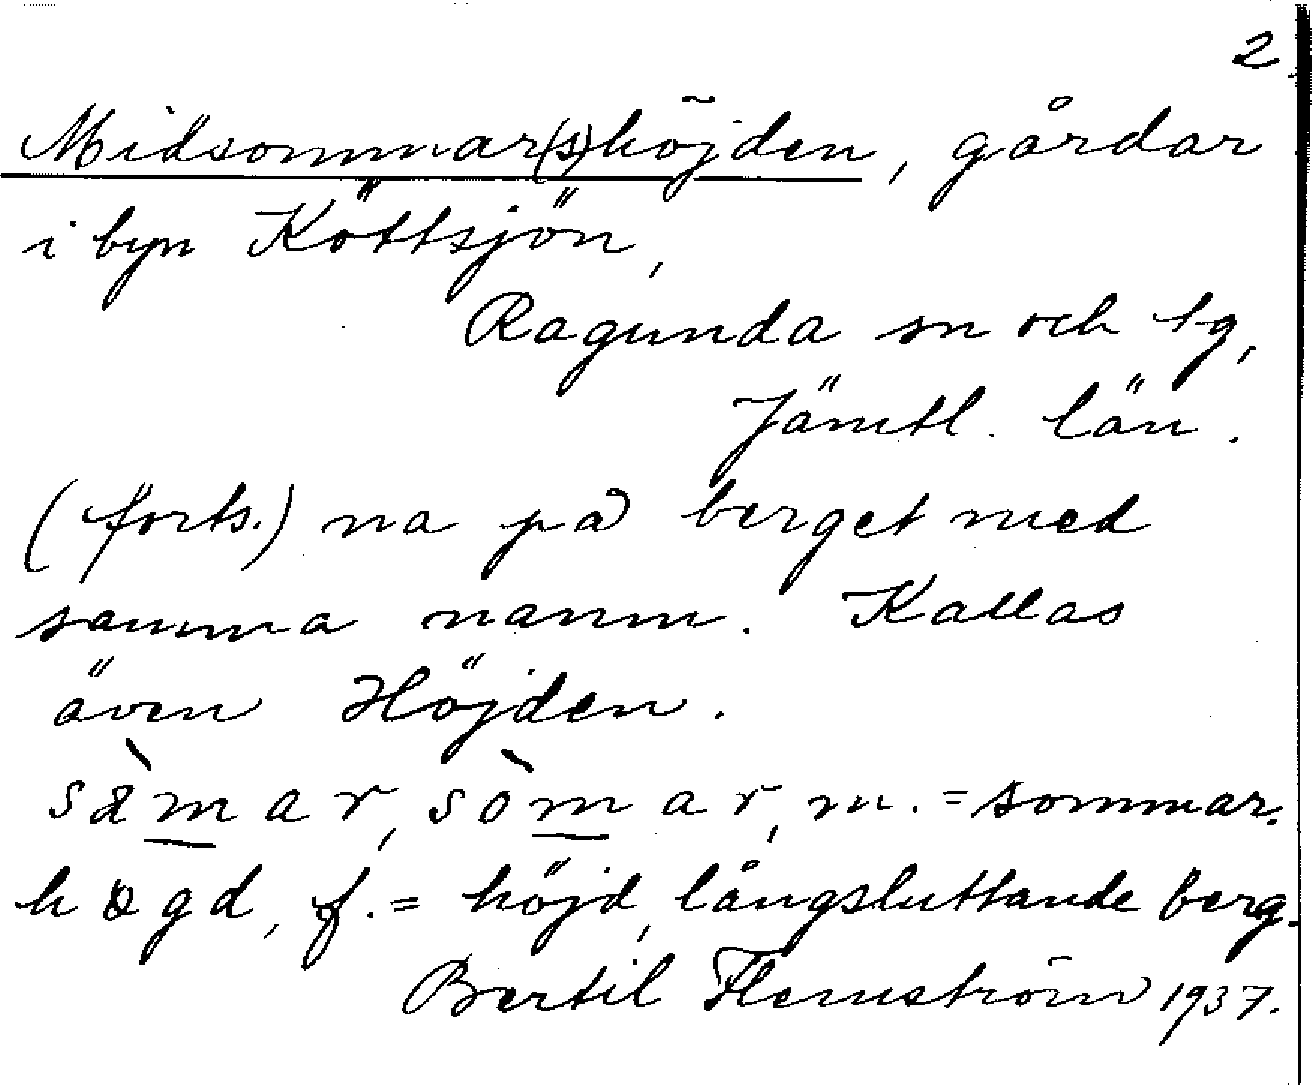 2
Midsommar(s)höjden, gårdar
i byn Köttsjön,
Ragunda sn och tg,
Jämtl. län.
(forts.) na på berget med
samma namn. Kallas
även Höjden.
sàmar, sòmar, m. = sommar.
høgd, f. = höjd, långsluttande berg.
Bertil Flemström 1937.